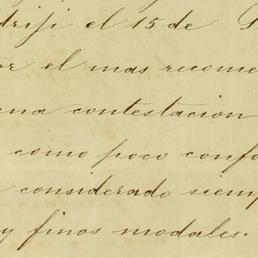 el 15 de
el mas recome
na contestacion
como poco confo
considerado siemp
y finos modales.